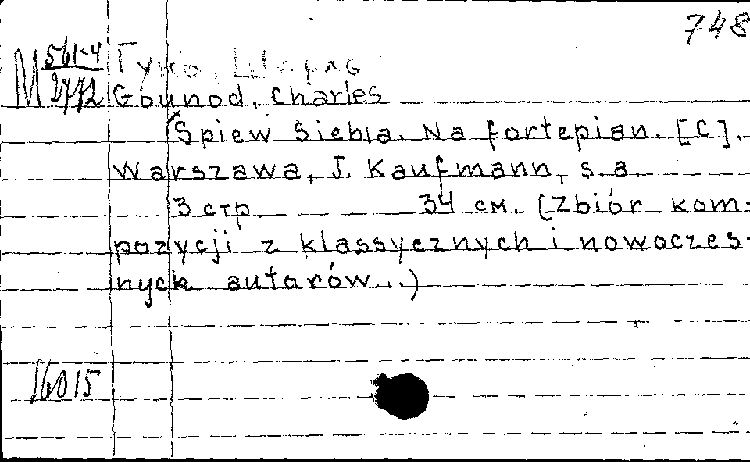 748
M 561-4
2772
Гуно, Шарль
Gounod, Charles
Śpiew Siebla. Na fortepian. [C].
Warszawa, J. Kaufmann, s.a.
3 стр. 34 см. (Zbiór kom-
pozycji z klassycznych i nowoczes-
nych autorów...)
16015